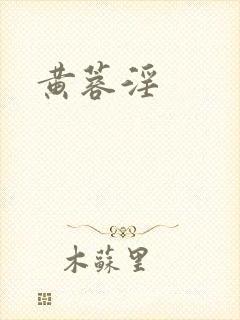 黄蓉淫
木蘇里